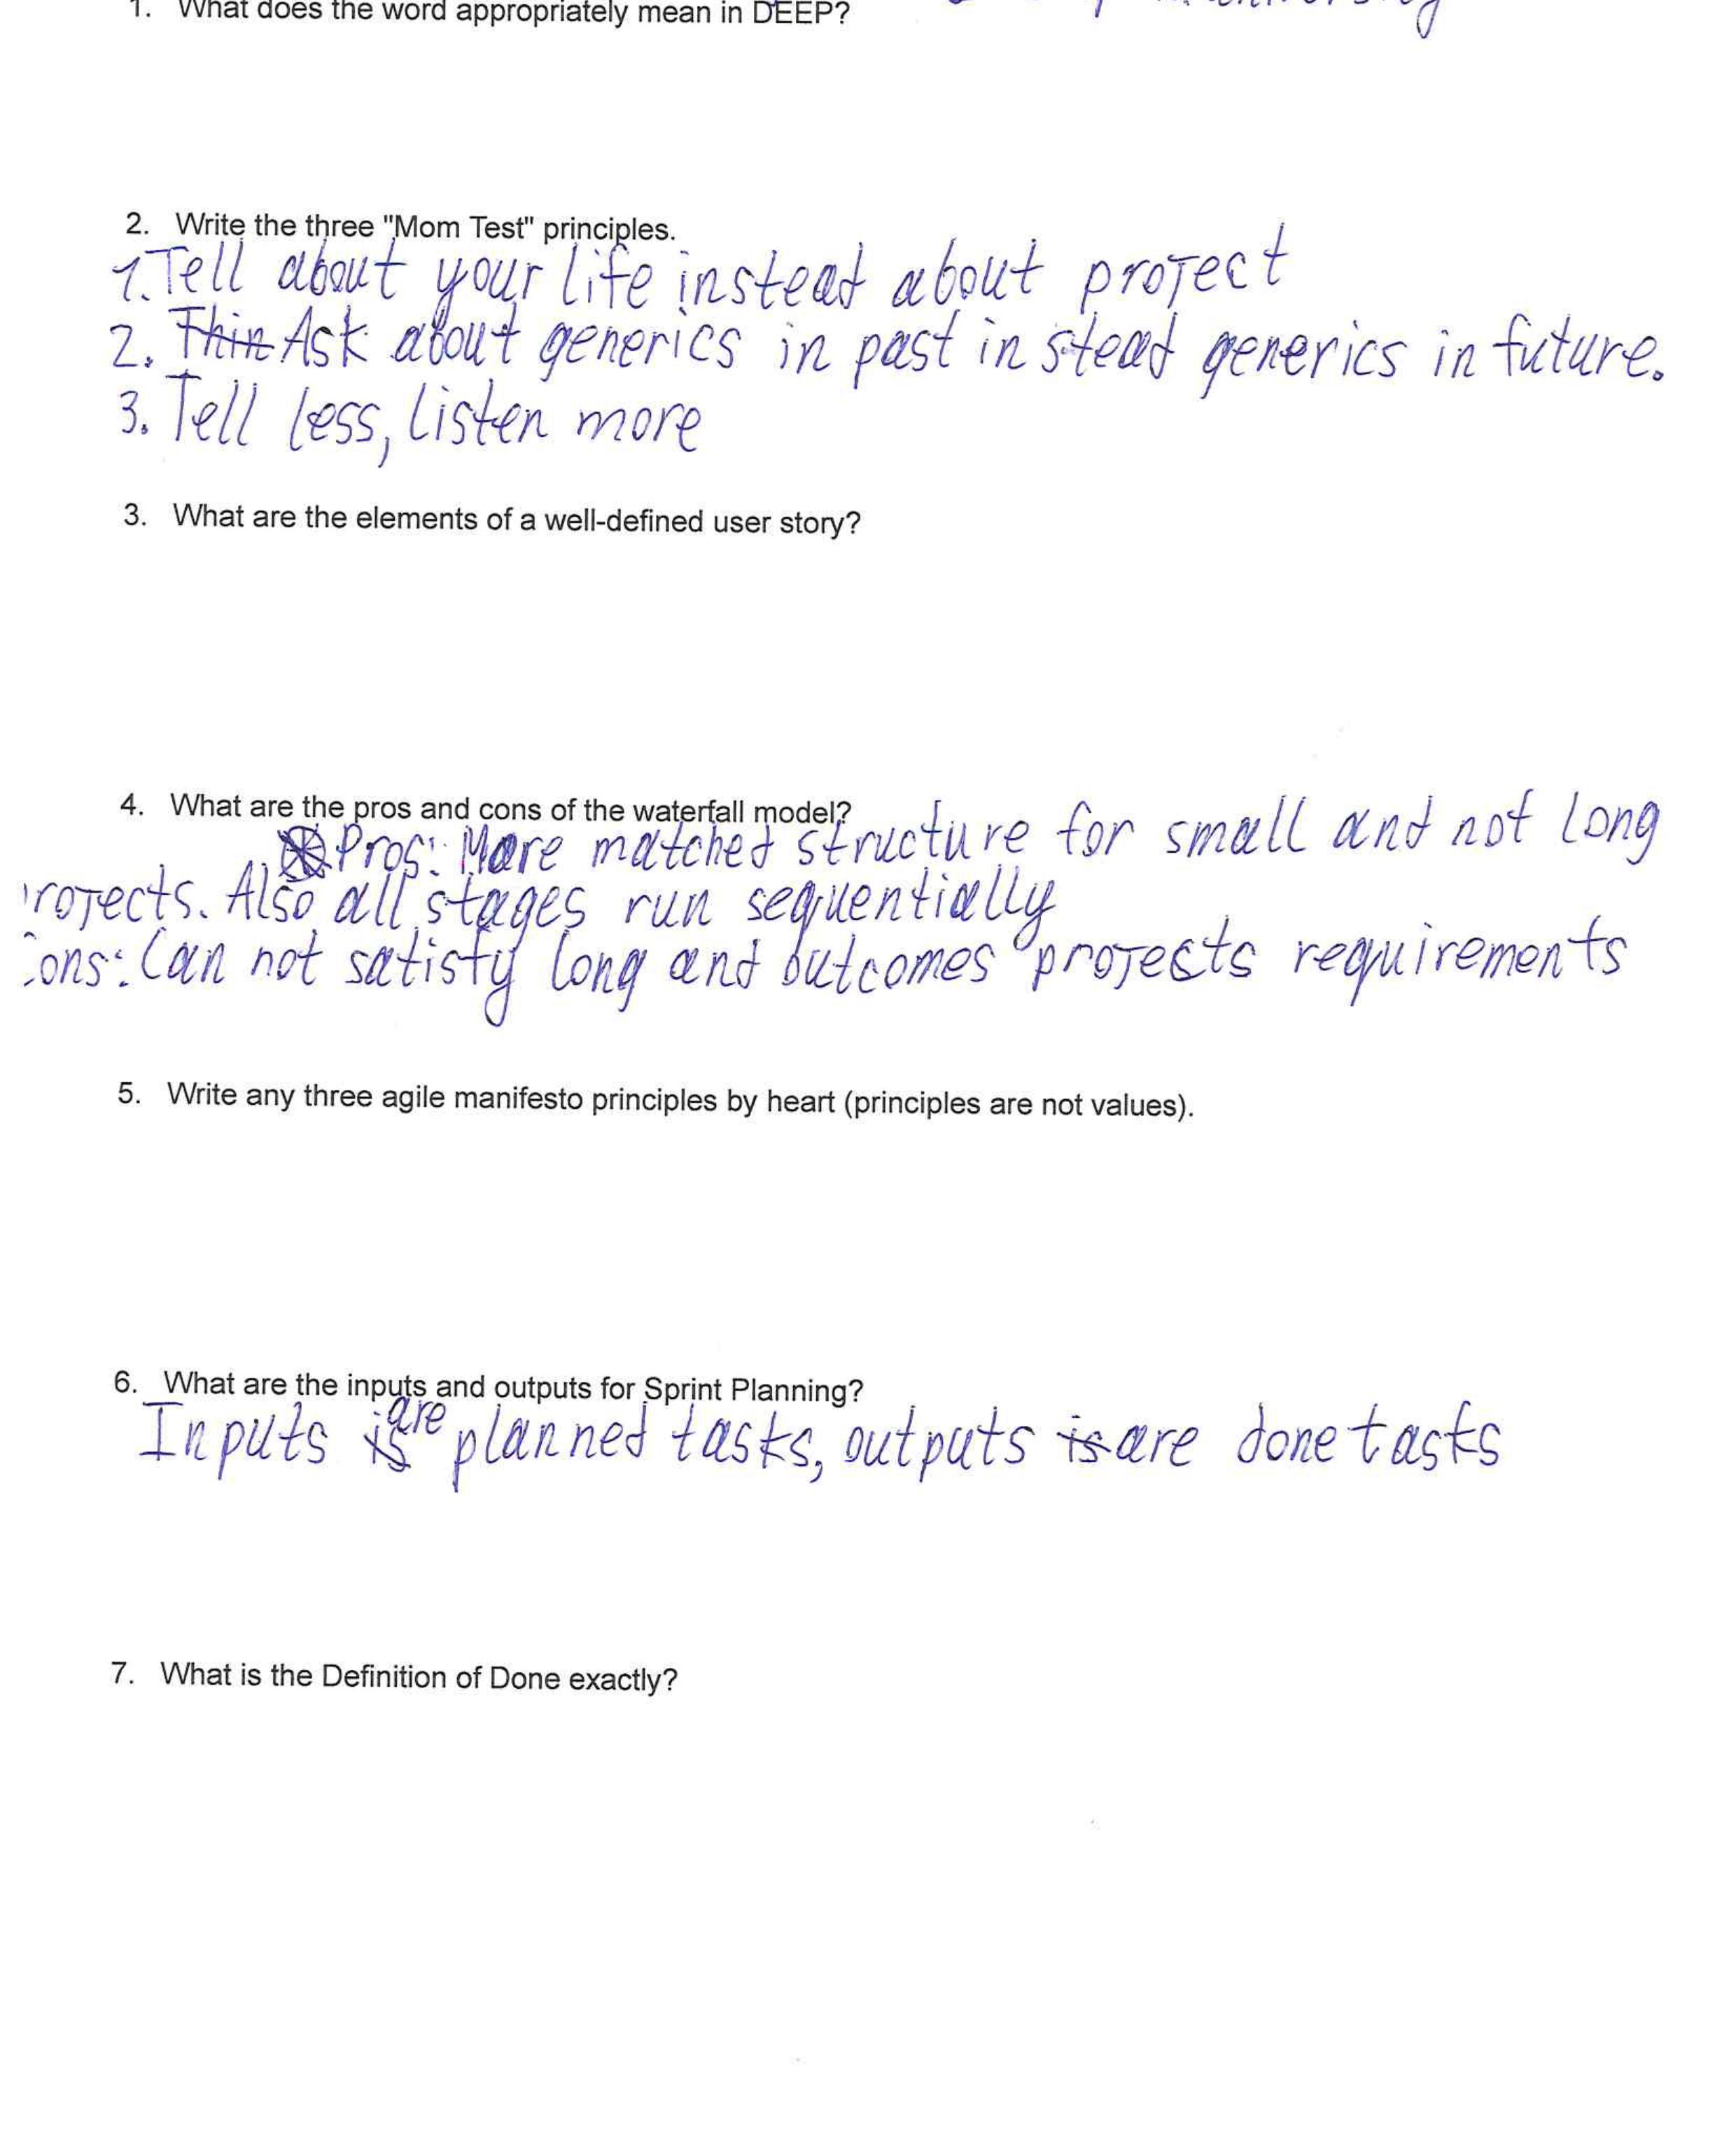 1. What does the word appropriately mean in DEEP?
2. Write the three "Mom Test" principles.
1. Tell about your life instead about project
2. Thin Ask about generics in past instead generics in future.
3. Tell less, listen more
3. What are the elements of a well-defined user story?
4. What are the pros and cons of the waterfall model?
Pros: More matched structure for small and not long
rojects. Also all stages run sequentially
ons: Can not satisfy long and outcomes projects requirements
5. Write any three agile manifesto principles by heart (principles are not values).
6. What are the inputs and outputs for Sprint Planning?
Inputs is are planned tasks, outputs is are done tasks
7. What is the Definition of Done exactly?